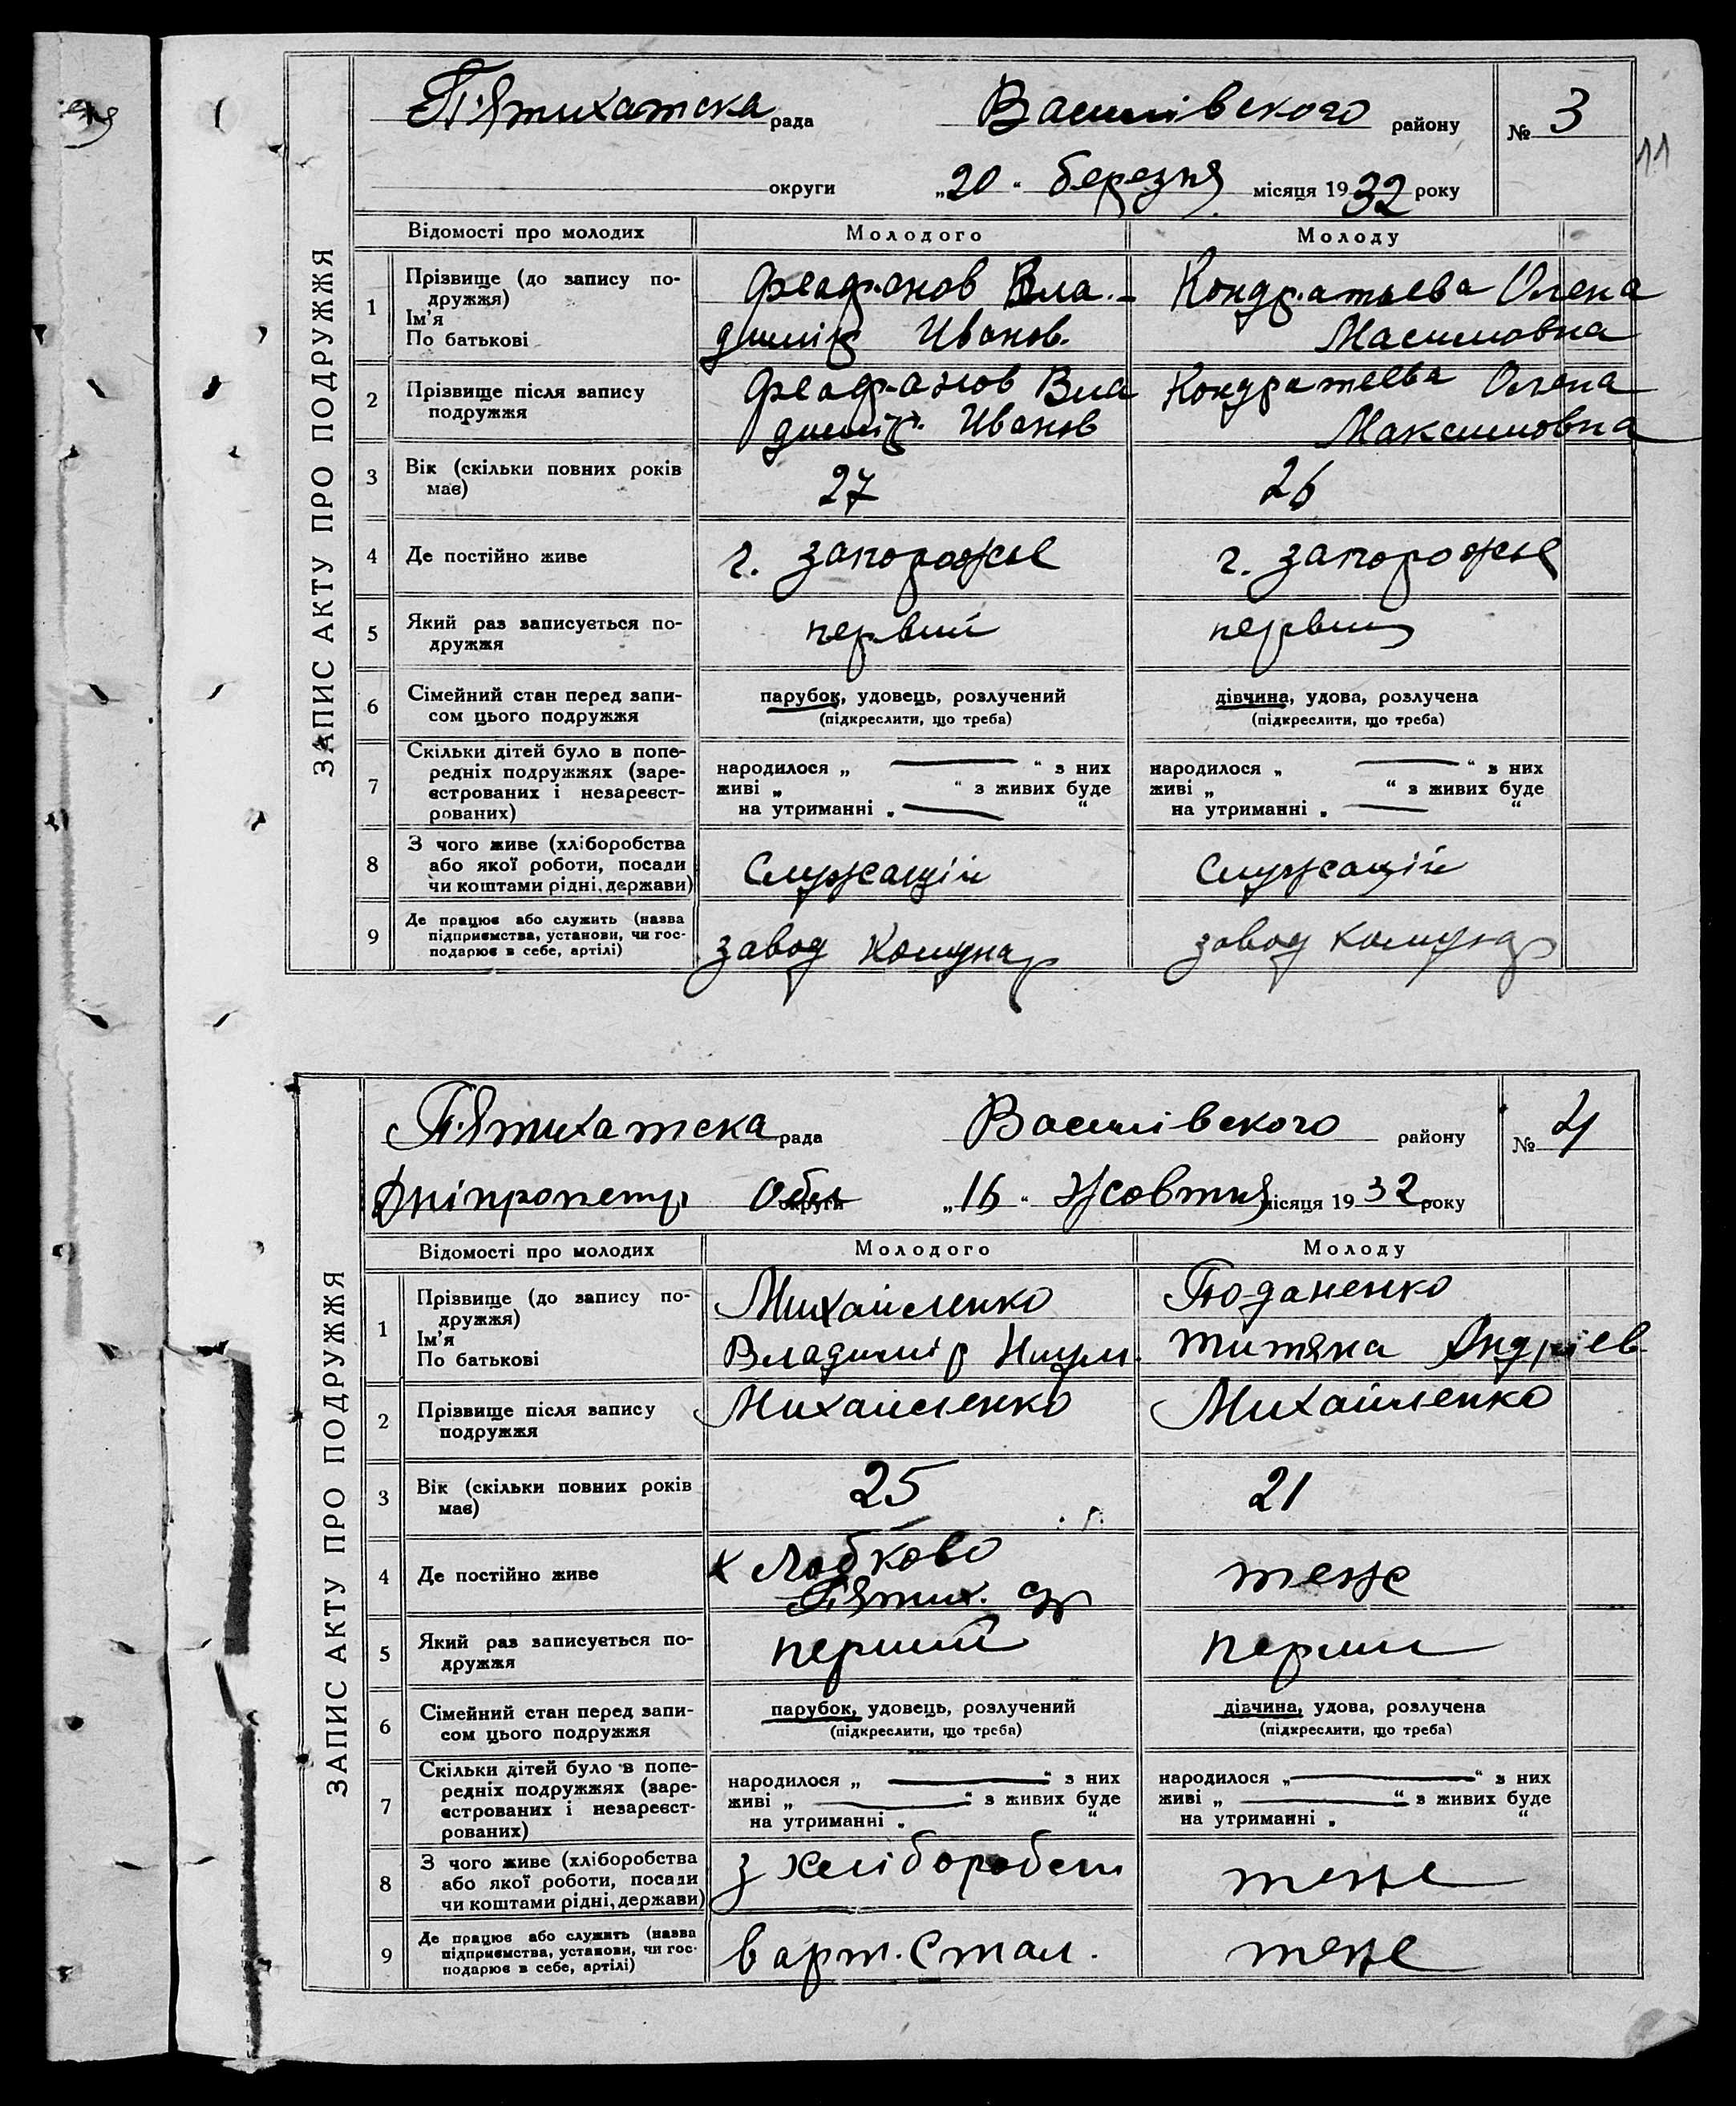 П'ятихатска рада Василівского району № 3
11
округи „20“ березня місяця 1932 року
ЗАПИС АКТУ ПРО ПОДРУЖЖЯ
Відомості про молодих Молодого Молоду
1 Прізвище (до запису по-
дружжя)
Ім'я
По батькові
Феофанов Вла-
димір Иванов.
Кондратьева Олена
Масимовна
2 Прізвище після запису
подружжя
Феофанов Вла
димір. Иванов
Кондратьева Олена
Максимовна
3 Вік (скільки повних років
має)
27 26
4 Де постійно живе г. Запорожье г. Запорожье
5 Який раз записується по-
дружжя
первий первий
6 Сімейний стан перед запи-
сом цього подружжя
парубок, удовець, розлучений
(підкреслити, що треба)
дівчина, удова, розлучена
(підкреслити, що треба)
7 Скільки дітей було в попе-
редніх подружжях (заре-
єстрованих і незареєст-
рованих)
народилося „ — “ з них
живі „ “ з живих буде
на утриманні „ — “
народилося „ — “ з них
живі „ “ з живих буде
на утриманні „ — “
8 З чого живе (хліборобства
або якої роботи, посади
чи коштами рідні, держави)
Служащій Служащій
9 Де працює або служить (назва
підприємства, установи, чи гос-
подарює в себе, артілі)
завод Комунар завод Комунар
П'ятихатска рада Василівского району № 4
Дніпропетр. Обл округи „16“ Жовтня місяця 1932 року
ЗАПИС АКТУ ПРО ПОДРУЖЖЯ
Відомості про молодих Молодого Молоду
1 Прізвище (до запису по-
дружжя)
Ім'я
По батькові
Михайленко
Владимір Наум.
Титяна Андріев.
2 Прізвище після запису
подружжя
Михайленко Михайленко
3 Вік (скільки повних років
має)
25 21
4 Де постійно живе
х Лобково
П'ятих. с/р
теже
5 Який раз записується по-
дружжя
перший перши
6 Сімейний стан перед запи-
сом цього подружжя
парубок, удовець, розлучений
(підкреслити, що треба)
дівчина, удова, розлучена
(підкреслити, що треба)
7 Скільки дітей було в попе-
редніх подружжях (заре-
єстрованих і незареєст-
рованих)
народилося „ — “ з них
живі „ — “ з живих буде
на утриманні „ “
народилося „ — “ з них
живі „ — “ з живих буде
на утриманні „ “
8 З чого живе (хліборобства
або якої роботи, посади
чи коштами рідні, держави)
з хліборобст теже
9 Де працює або служить (назва
підприємства, установи, чи гос-
подарює в себе, артілі)
в арт. Стал. теже